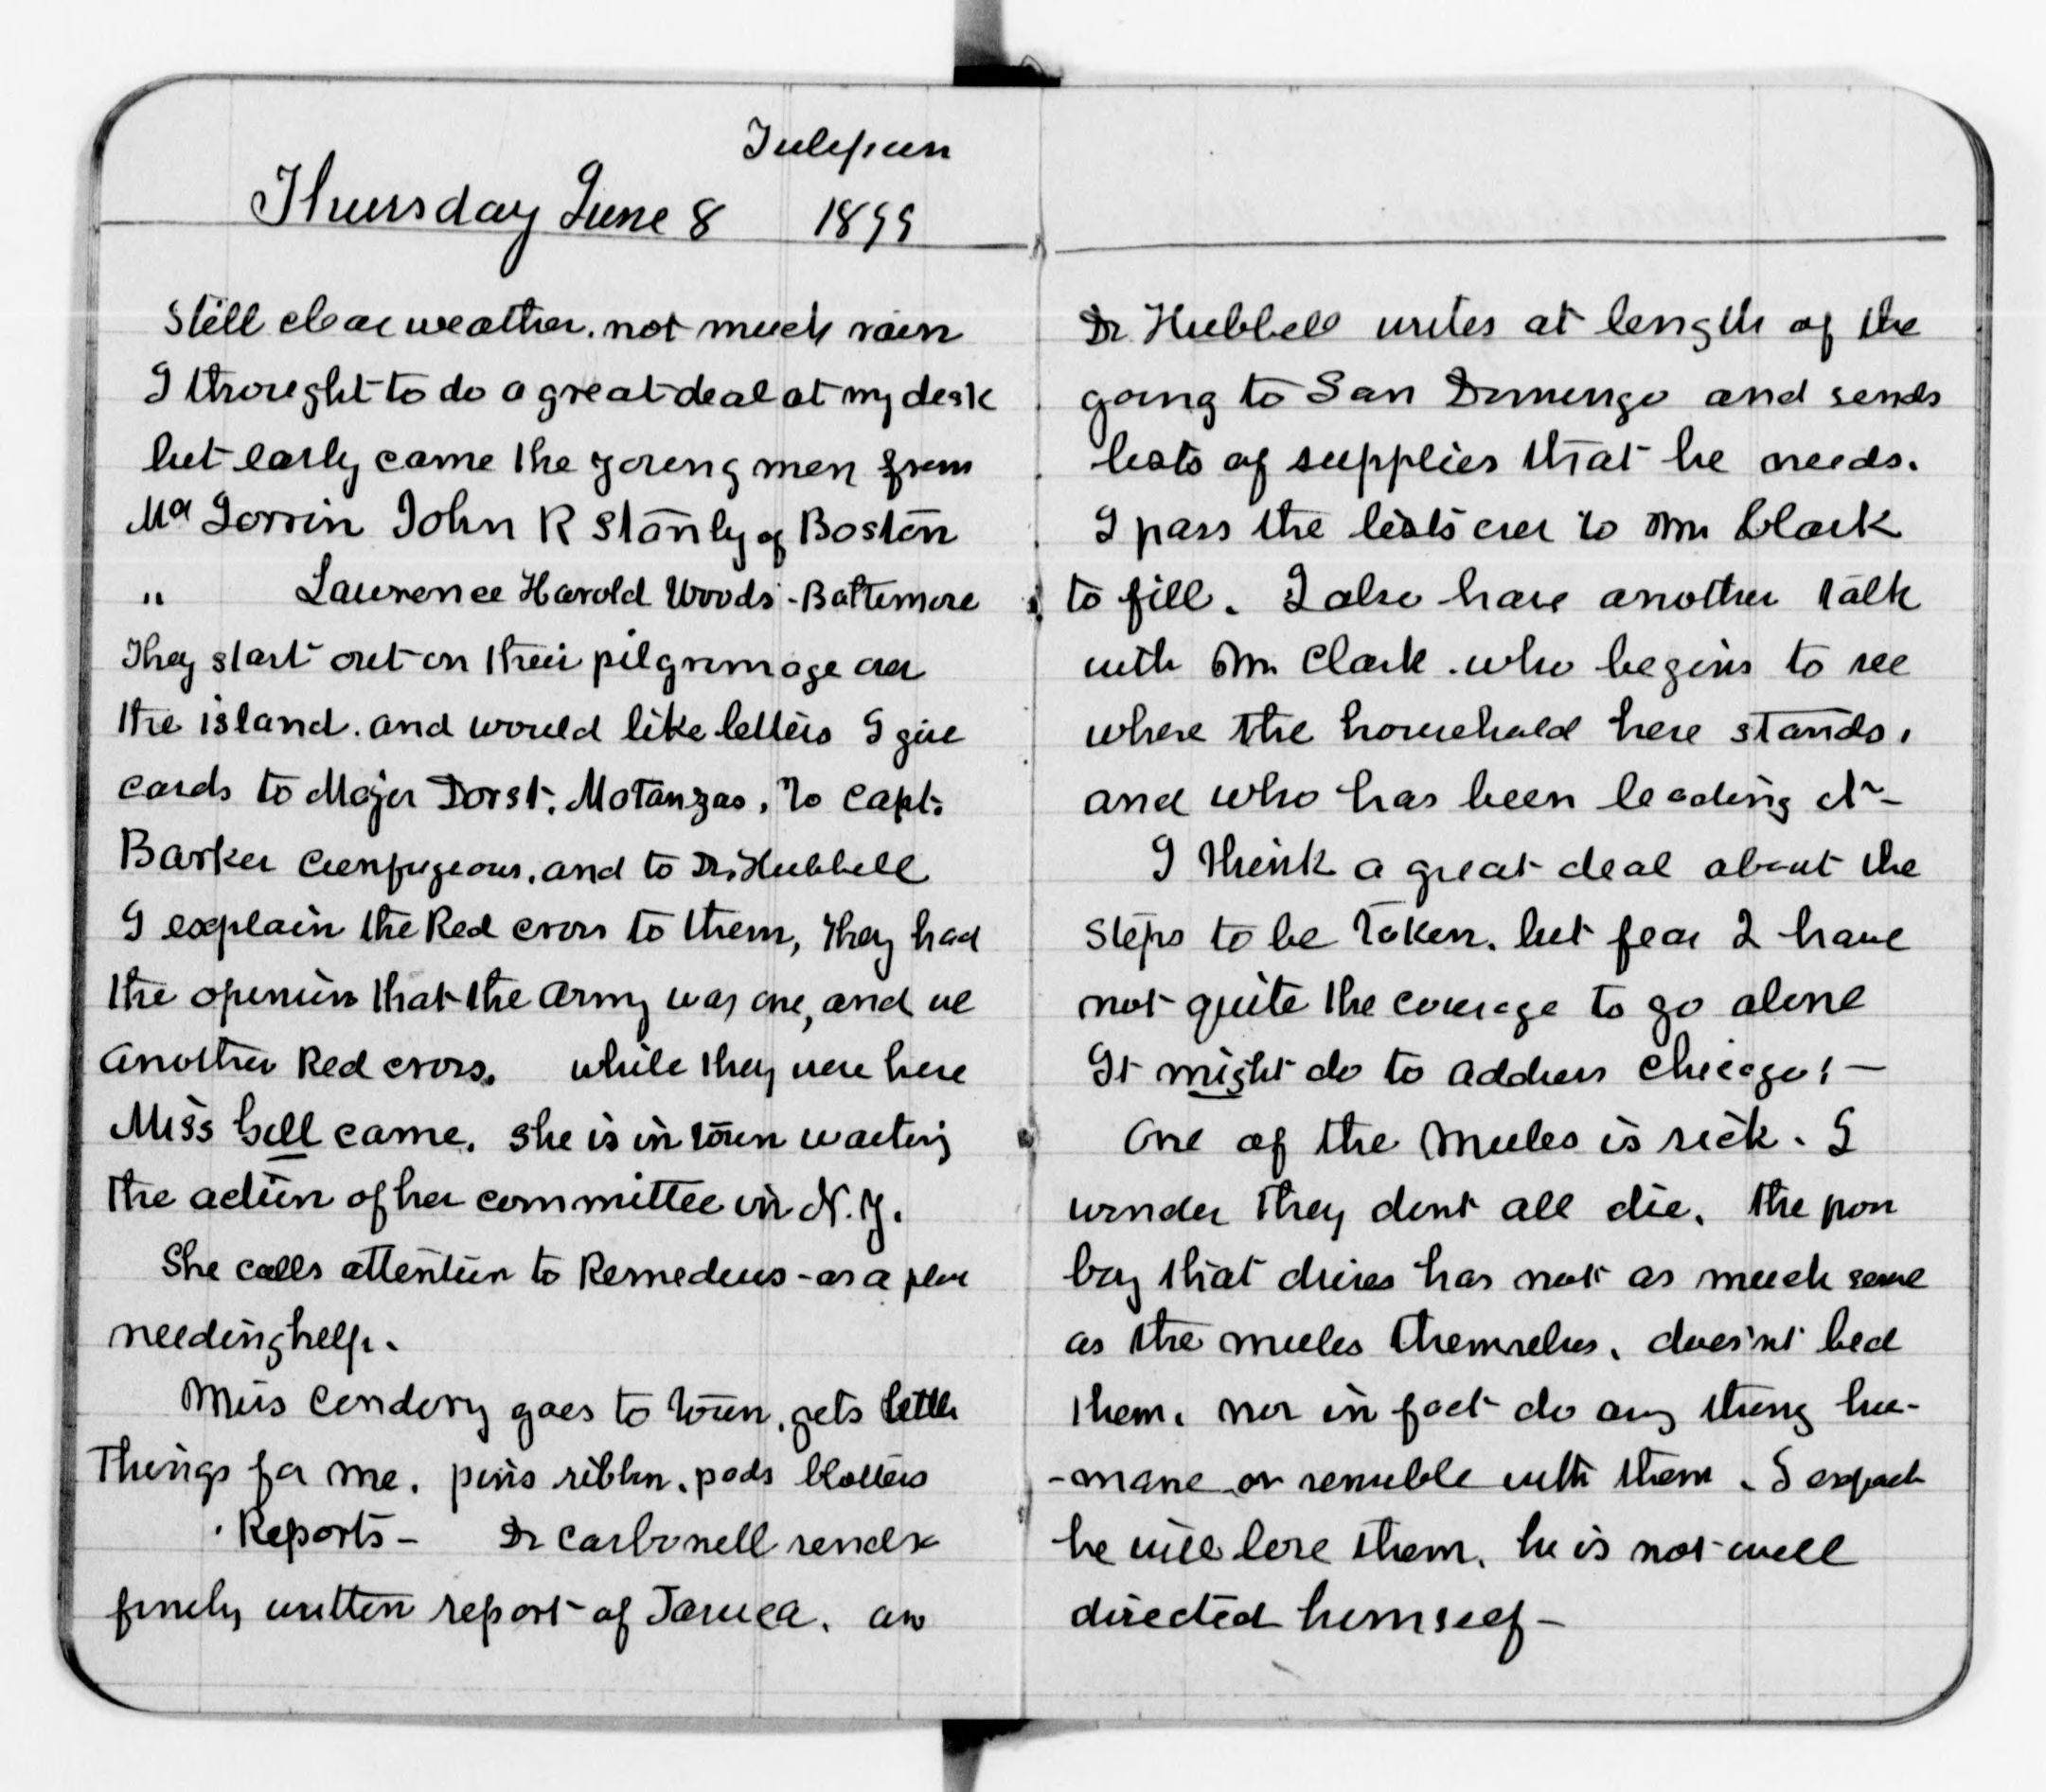 Tulipan
Thursday June 8 1899
Still clear weather. not much rain
I throught to do a great deal at my desk
but early came the young men from
Mr Lorrin John R Stanly of Boston
" Lawrence Harold Woods - Baltimore
They start out on their pilgrimage over
the island. and would like letters I give
cards to Major Dorst. Matanzas, to Capt.
Barker Cienfugeous, and to Dr. Hubbell
I explain the Red cross to them, they had
the opinion that the army was one, and we
another Red cross. while they were here
Miss Gill came. she is in town waiting
the action of her committee in N.Y.
She calls attention to Remedius - as a place
needing help.
Miss Cendory goes to town, gets little
Things for me. pins ribbn. pads blotters
Reports - Dr Carbonell sends
finely written report of Jaruca.
Dr Hubbell writes at length of the
going to San Domingo and sends
lists of supplies that he needs.
I pass the lists over to Mr Clark
to fill. I also have another talk
with Mr. Clark. who begins to see
where the household here stands,
and who has been leading it -
I think a great deal about the
steps to be taken. but fear I have
not quite the courage to go alone
It might do to address Chicago! -
One of the mules is sick. I
wonder they dont all die. the poor
boy that drives has not as much sense
as the mules themselves. does'nt bed
them. nor in fact do any thing hu-
-mane or sensible with them. I expect
he will lose them. he is not well
directed himself -